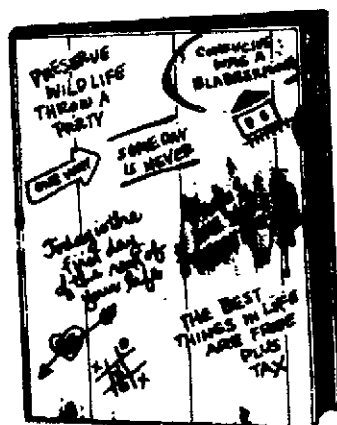 PRESERVE
WILD LIFE
THROW A
PARTY
CONFUCIUS
WAS A
BLABBERMOUTH
ONE WAY
SOME DAY
IS NEVER
Today is the
first day
of the rest of
your life
THE BEST
THINGS IN LIFE
ARE FREE
PLUS
TAX